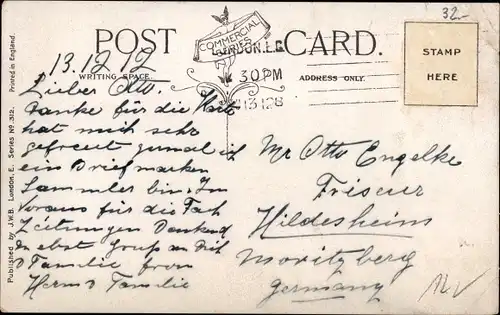 32.-
POST CARD.
COMMERCIAL SERIES
LONDON. E.C
.30PM
13 12 8
WRITING SPACE
ADDRESS ONLY.
STAMP
HERE
Printed in England.
Published by J.W.B. London, E. Series No. 312.
13.12.12
Lieber Otto.
Danke für die Karte
hat mich sehr
gefreut zumal ich
ein Briefmarken
Sammler bin. Im
Voraus für die Fach
Zeitungen Dankend
nebst Gruß an Dich
& Familie from
Herm & Familie
Mr Otto Engelke
Friseur
Hildesheim
Moritzberg
Germany